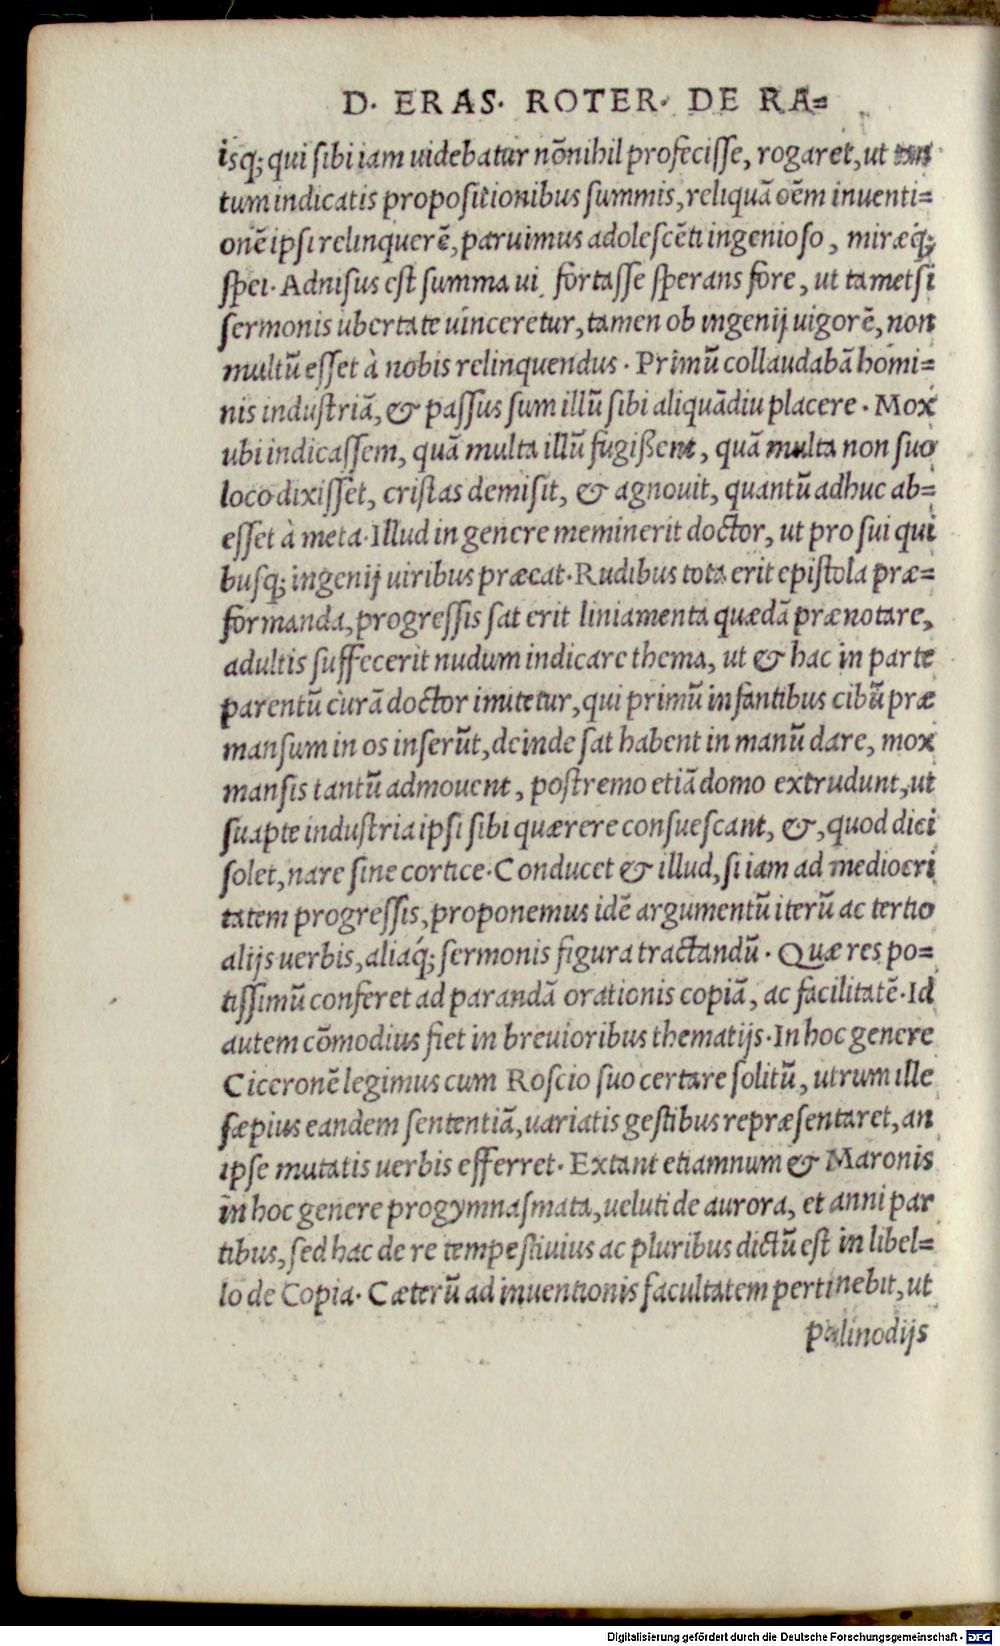 D. ERAS. ROTER. DE RA=
isq; qui sibi iam uidebatur nōnihil profecisse, rogaret, ut tan
tum indicatis propositionibus summis, reliquā oēm inuenti=
onē ipsi relinquerē, paruimus adolescēti ingenioso, miræq́;
spei. Adnisus est summa ui, fortasse sperans fore, ut tametsi
sermonis ubertate uinceretur, tamen ob ingenij uigorē, non
multū esset à nobis relinquendus. Primū collaudabā homi=
nis industriā, & passus sum illū sibi aliquādiu placere. Mox
ubi indicassem, quā multa illū fugißent, quā multa non suo
loco dixisset, cristas demisit, & agnouit, quantū adhuc ab=
esset à meta. Illud in genere meminerit doctor, ut pro sui qui
busq; ingenij uiribus præeat. Rudibus tota erit epistola præ=
formanda, progressis sat erit liniamenta quædā prænotare,
adultis suffecerit nudum indicare thema, ut & hac in parte
parentū curā doctor imitetur, qui primū infantibus cibū præ
mansum in os inserūt, deinde sat habent in manū dare, mox
mansis tantū admouent, postremo etiā domo extrudunt, ut
suapte industria ipsi sibi quærere consuescant, &, quod dici
solet, nare sine cortice. Conducet & illud, si iam ad mediocri
tatem progressis, proponemus idē argumentū iterū ac tertio
alijs uerbis, aliaq́; sermonis figura tractandū. Quæ res po=
tissimū conferet ad parandā orationis copiā, ac facilitatē. Id
autem cōmodius fiet in breuioribus thematijs. In hoc genere
Ciceronē legimus cum Roscio suo certare solitū, utrum ille
sæpius eandem sententiā, uariatis gestibus repræsentaret, an
ipse mutatis uerbis efferret. Extant etiamnum & Maronis
in hoc genere progymnasmata, ueluti de aurora, et anni par
tibus, sed hac de re tempestiuius ac pluribus dictū est in libel=
lo de Copia. Cæterū ad inuentionis facultatem pertinebit, ut
palinodijs
Digitalisierung gefördert durch die Deutsche Forschungsgemeinschaft - DFG